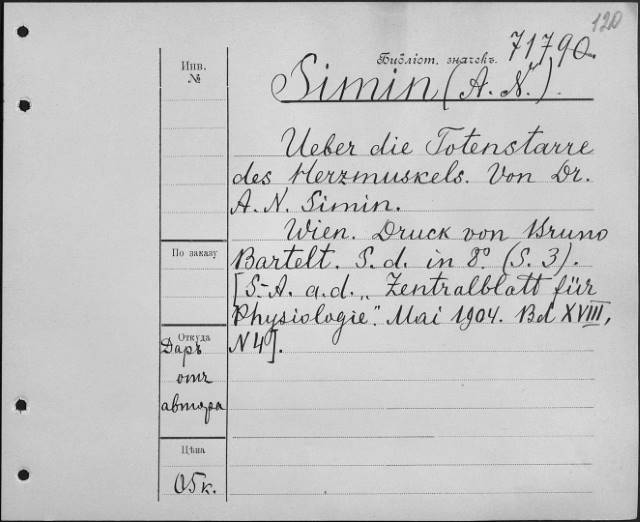 120
Библіот. значекъ. 71790.
Инв.
№
Simin (A. N.).
Ueber die Totenstarre
des Herzmuskels. Von Dr.
A. N. Simin.
Wien. Druck von Bruno
Bartelt. S. d. in 8° (S. 3).
[S.-A. a. d. „Zentralblatt für
Physiologie". Mai 1904. Bd XVIII,
N 4].
По заказу
Откуда
Даръ
отъ
автора
Цѣна
05к.